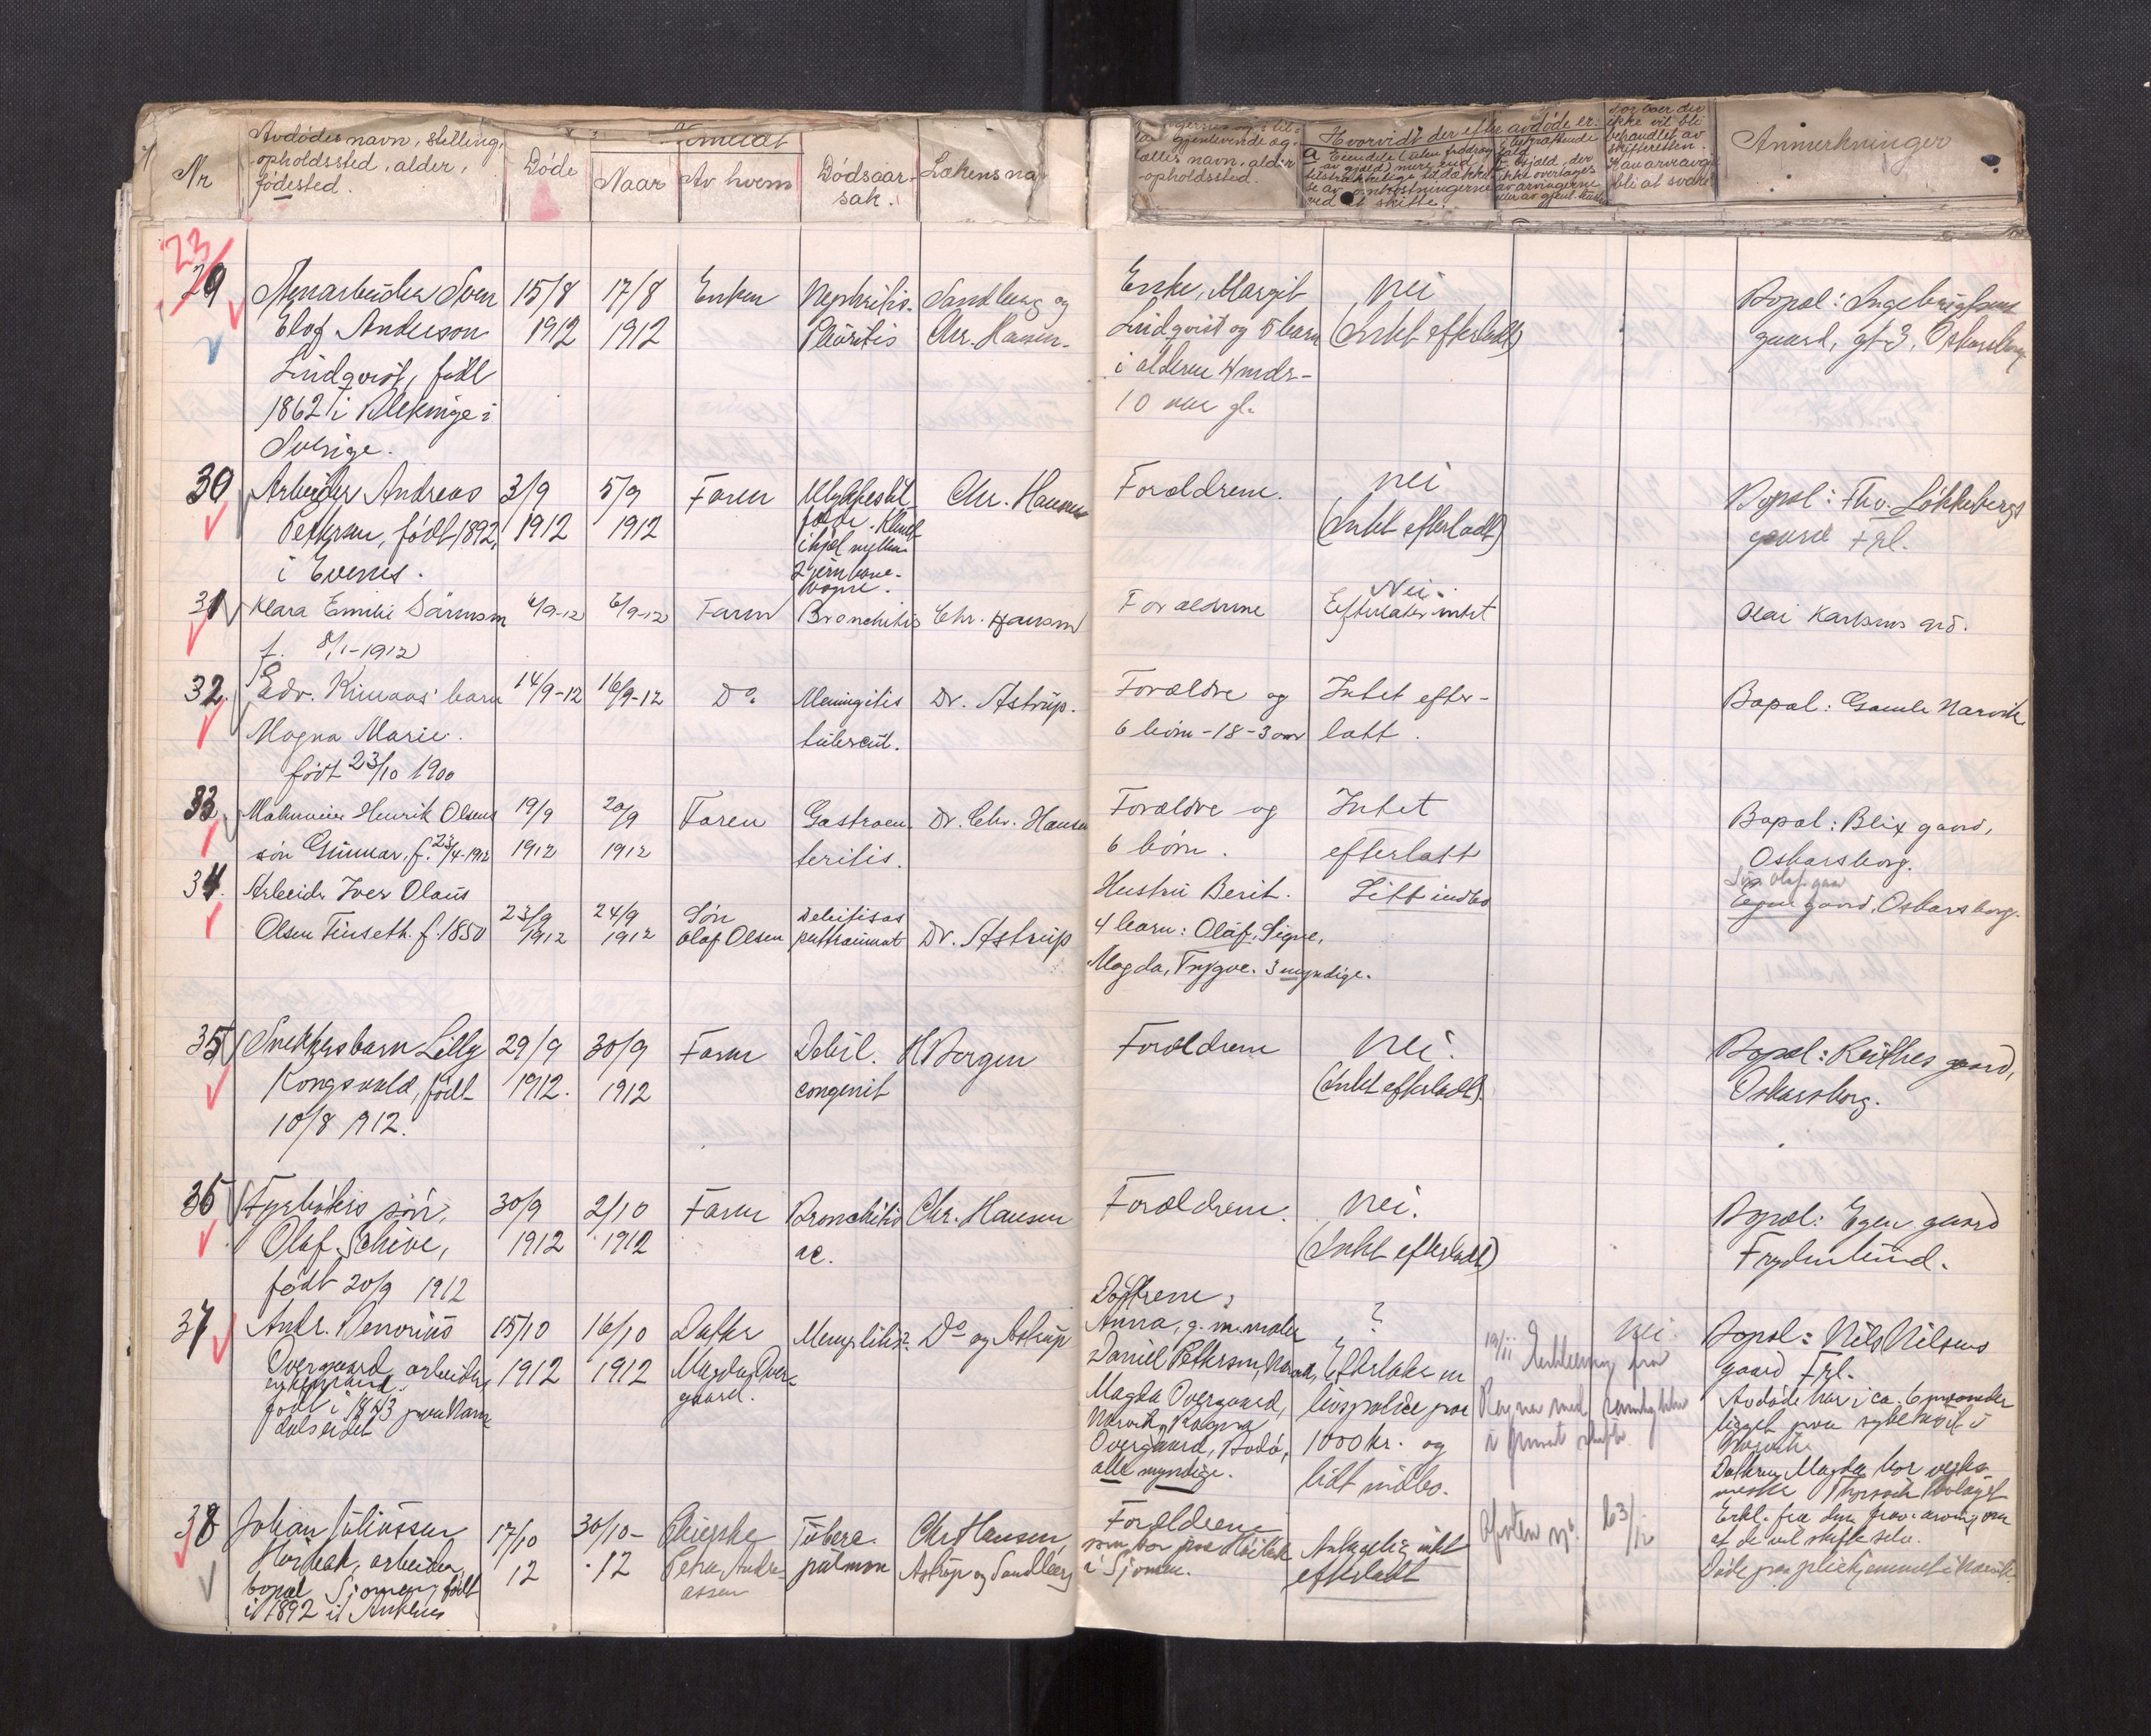 Nr
Avdødes navn, stilling,
opholdssted, alder,
fødested.
Døde
Anmeldt
Naar
Av hvem
Dødsaar-
sak.
Lækens na
gjenlevende æg-
tælles navn, alder
opholdssted.
Hvorvidt der efter avdøde er:
ved et skifte.
behandlet av
skifteretten.
bli at svare
Anmerkninger
23
29
Sven
Elof Anderson
Lindqvist, født
1862 i Blekinge i
Sverige.
15/8
1912
17/8
1912
Enken
Nephritis-
Pleuritis
Sandberg og
Chr. Hansen.
Enke, Margit
Lindqvist og 5 barn
i alderen 4 mdr-
10 aar gl.
nei
(Intet efterladt)
Bopæl: Ingebrigtsens
gaard, gt 3, Oskarsborg
30
Arbeider Andreas
Pettersen, født 1892,
i Evenes.
3/9
1912
5/9
1912
Faren
Ulykkestil-
fælde. Klemt
ihjel mellem
2 jernbane-
vogne.
Chr. Hansen
Forældrene.
nei
(Intet efterladt)
Bopæl: Thv. Løkkebergs
gaard Frl.
31
Klara Emilie
f. 8/1-1912
4/9-12
6/9-12
Faren
Bronchitis
Chr. Hansen
Forældrene
Nei.
Efterlater intet
Olai Karlsens grd.
32.
Edv. Kimaas' barn
Magna Marie.
født 23/10 1900
14/9-12
16/9-12
Do
Meningitis
tubercul.
Dr. Astrup.
Forældre og
6 børn - 18-3 aar
Intet efter-
latt.
Bopæl: Gamle Narvik
33.
Henrik Olsens
søn Gunnar. f. 23/4-1912
19/9
1912
20/9
1912
Faren
Gastroen-
teritis.
Dr. Chr. Hansen
Forældre og
6 børn.
Intet
efterlatt
Bopæl: Blix gaard,
Oskarsborg.
34.
Arbeider Iver Olaus
Olsen Finseth. f. 1850
23/9
1912
24/9
1912
Søn
Olaf Olsen
Dr. Astrup
Hustru Berit.
4 barn: Olaf, Signe,
Magda, Trygve. 3 myndige.
Litt indbo
Egen gaard, Oskarsborg.
35
Snekkers barn Lilly
Kongsvold, født
10/8 1912.
29/9
1912.
30/9
1912
Faren
Debil.
congenit
H Borgen
Forældrene
nei.
(Intet efterladt).
Bopæl: Reithes gaard,
Oskarsborg.
36
Fyrbøters søn,
Olaf Schive,
født 20/9 1912
30/9
1912
2/10
1912
Faren
Bronchitis
ac.
Chr. Hansen
Forældrene.
nei.
(Intet efterladt)
Bopæl: Egen gaard
Frydenlund.
37
Andr. Benorius
Overgaard, arbeider,
enkemand.
født i 1843 paa Nam-
dalseidet
15/10
1912
16/10
1912
Datter
Magda Over-
gaard.
Do og Astrup
Døttrene:
Anna, g. m. maler
Daniel Pettersen, Narvik,
Magda Overgaard,
Narvik, Ragna
Overgaard, Bodø,
alle myndige.
?
Efterlater en
livspolice paa
1000 kr. og
lidt indbo.
19/11 Erklæring fra
Ragna med
i privat skifte
nei
Bopæl: Nils Nilsens
gaard Frl.
Avdøde har i ca. 6 maaneder
ligget paa sykehuset i
Narvik.
Datteren Magda
Erkl. fra
at de vil skifte selv.
38
Johan Juliussen
Høibak, arbeider,
bopæl Sjomen, født
i 1892 i Ankenes
17/10
12
30/10-
12
Petra Andre-
assen
Tuberc.
pulmon
Chr Hansen,
Astrup og Sandberg
Forældrene
som bor paa Høibak
i Sjomen.
Antagelig intet
efterladt
Ofoten
Døde paa pleiehjemmet i Narvik.